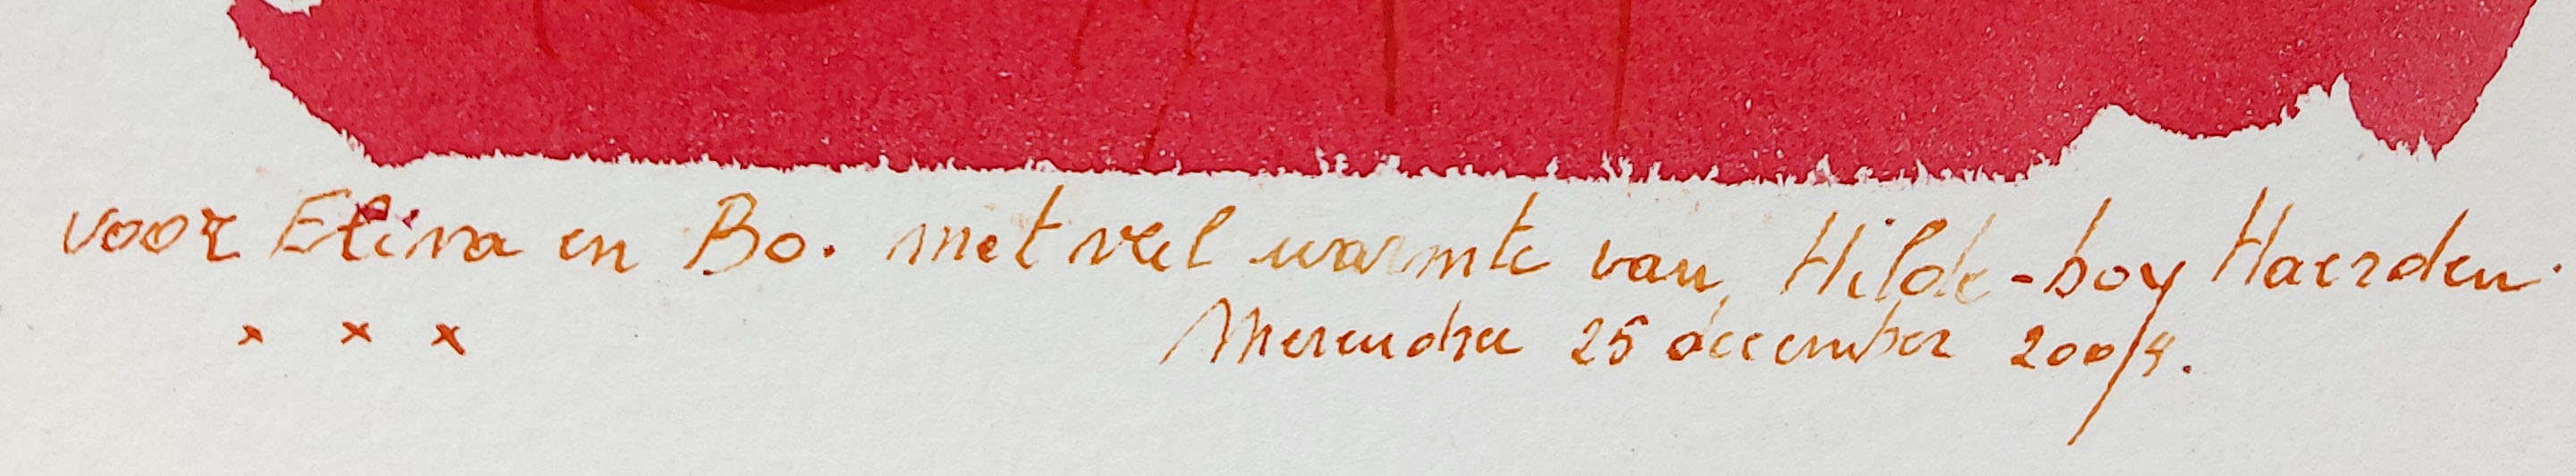 voor Elina en Bo. met veel warmte van, Hilde-boy Haerden.
x x x Merendree 25 december 2004.